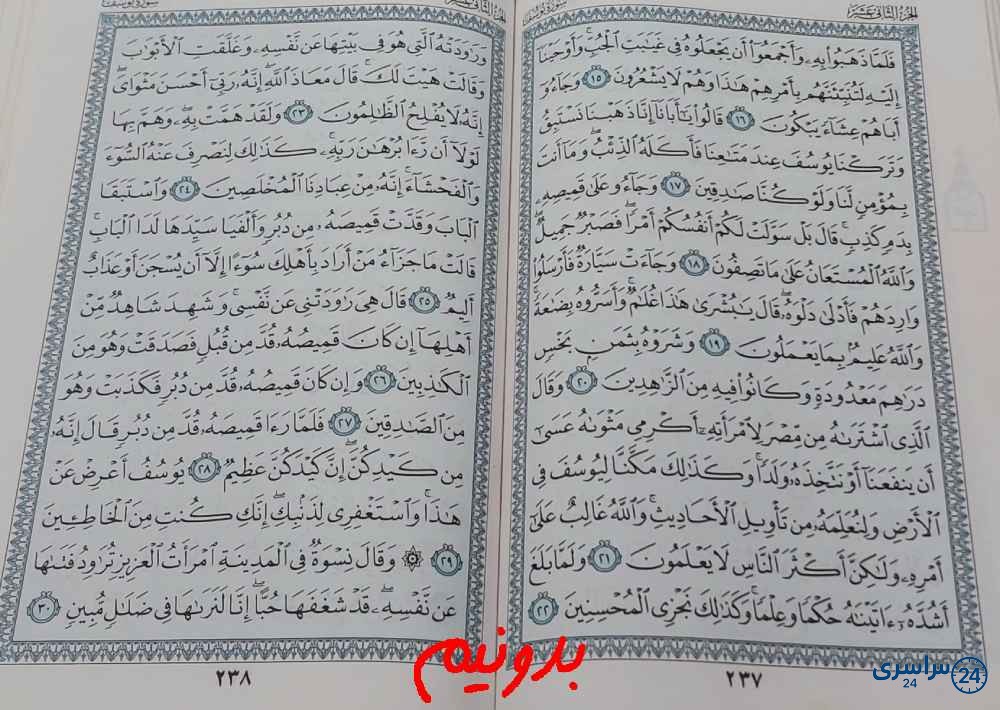 الجزء الثاني عشر
سورة يوسف
فَلَمَّا ذَهَبُوا۟ بِهِۦ وَأَجْمَعُوٓا۟ أَن يَجْعَلُوهُ فِى غَيَـٰبَتِ ٱلْجُبِّ ۚ وَأَوْحَيْنَآ
إِلَيْهِ لَتُنَبِّئَنَّهُم بِأَمْرِهِمْ هَـٰذَا وَهُمْ لَا يَشْعُرُونَ ١٥ وَجَآءُو
أَبَاهُمْ عِشَآءً يَبْكُونَ ١٦ قَالُوا۟ يَـٰٓأَبَانَآ إِنَّا ذَهَبْنَا نَسْتَبِقُ
وَتَرَكْنَا يُوسُفَ عِندَ مَتَـٰعِنَا فَأَكَلَهُ ٱلذِّئْبُ ۖ وَمَآ أَنتَ
بِمُؤْمِنٍ لَّنَا وَلَوْ كُنَّا صَـٰدِقِينَ ١٧ وَجَآءُو عَلَىٰ قَمِيصِهِۦ
بِدَمٍ كَذِبٍ ۚ قَالَ بَلْ سَوَّلَتْ لَكُمْ أَنفُسُكُمْ أَمْرًا ۖ فَصَبْرٌ جَمِيلٌ ۖ
وَٱللَّهُ ٱلْمُسْتَعَانُ عَلَىٰ مَا تَصِفُونَ ١٨ وَجَآءَتْ سَيَّارَةٌ فَأَرْسَلُوا۟
وَارِدَهُمْ فَأَدْلَىٰ دَلْوَهُۥ ۖ قَالَ يَـٰبُشْرَىٰ هَـٰذَا غُلَـٰمٌ ۚ وَأَسَرُّوهُ بِضَـٰعَةً ۚ
وَٱللَّهُ عَلِيمٌۢ بِمَا يَعْمَلُونَ ١٩ وَشَرَوْهُ بِثَمَنٍۭ بَخْسٍ
دَرَٰهِمَ مَعْدُودَةٍ وَكَانُوا۟ فِيهِ مِنَ ٱلزَّٰهِدِينَ ٢٠ وَقَالَ
ٱلَّذِى ٱشْتَرَىٰهُ مِن مِّصْرَ لِٱمْرَأَتِهِۦٓ أَكْرِمِى مَثْوَىٰهُ عَسَىٰٓ
أَن يَنفَعَنَآ أَوْ نَتَّخِذَهُۥ وَلَدًا ۚ وَكَذَٰلِكَ مَكَّنَّا لِيُوسُفَ فِى
ٱلْأَرْضِ وَلِنُعَلِّمَهُۥ مِن تَأْوِيلِ ٱلْأَحَادِيثِ ۚ وَٱللَّهُ غَالِبٌ عَلَىٰٓ
أَمْرِهِۦ وَلَـٰكِنَّ أَكْثَرَ ٱلنَّاسِ لَا يَعْلَمُونَ ٢١ وَلَمَّا بَلَغَ
أَشُدَّهُۥٓ ءَاتَيْنَـٰهُ حُكْمًا وَعِلْمًا ۚ وَكَذَٰلِكَ نَجْزِى ٱلْمُحْسِنِينَ ٢٢
٢٣٧
سورة يوسف
وَرَٰوَدَتْهُ ٱلَّتِى هُوَ فِى بَيْتِهَا عَن نَّفْسِهِۦ وَغَلَّقَتِ ٱلْأَبْوَٰبَ
وَقَالَتْ هَيْتَ لَكَ ۚ قَالَ مَعَاذَ ٱللَّهِ ۖ إِنَّهُۥ رَبِّىٓ أَحْسَنَ مَثْوَاىَ ۖ
إِنَّهُۥ لَا يُفْلِحُ ٱلظَّـٰلِمُونَ ٢٣ وَلَقَدْ هَمَّتْ بِهِۦ ۖ وَهَمَّ بِهَا
لَوْلَآ أَن رَّءَا بُرْهَـٰنَ رَبِّهِۦ ۚ كَذَٰلِكَ لِنَصْرِفَ عَنْهُ ٱلسُّوٓءَ
وَٱلْفَحْشَآءَ ۚ إِنَّهُۥ مِنْ عِبَادِنَا ٱلْمُخْلَصِينَ ٢٤ وَٱسْتَبَقَا
ٱلْبَابَ وَقَدَّتْ قَمِيصَهُۥ مِن دُبُرٍ وَأَلْفَيَا سَيِّدَهَا لَدَا ٱلْبَابِ ۚ
قَالَتْ مَا جَزَآءُ مَنْ أَرَادَ بِأَهْلِكَ سُوٓءًا إِلَّآ أَن يُسْجَنَ أَوْ عَذَابٌ
أَلِيمٌ ٢٥ قَالَ هِىَ رَٰوَدَتْنِى عَن نَّفْسِى ۚ وَشَهِدَ شَاهِدٌ مِّنْ
أَهْلِهَآ إِن كَانَ قَمِيصُهُۥ قُدَّ مِن قُبُلٍ فَصَدَقَتْ وَهُوَ مِنَ
ٱلْكَـٰذِبِينَ ٢٦ وَإِن كَانَ قَمِيصُهُۥ قُدَّ مِن دُبُرٍ فَكَذَبَتْ وَهُوَ
مِنَ ٱلصَّـٰدِقِينَ ٢٧ فَلَمَّا رَءَا قَمِيصَهُۥ قُدَّ مِن دُبُرٍ قَالَ إِنَّهُۥ
مِن كَيْدِكُنَّ ۖ إِنَّ كَيْدَكُنَّ عَظِيمٌ ٢٨ يُوسُفُ أَعْرِضْ عَنْ
هَـٰذَا ۚ وَٱسْتَغْفِرِى لِذَنۢبِكِ ۖ إِنَّكِ كُنتِ مِنَ ٱلْخَاطِـِٔينَ
٢٩ ۞ وَقَالَ نِسْوَةٌ فِى ٱلْمَدِينَةِ ٱمْرَأَتُ ٱلْعَزِيزِ تُرَٰوِدُ فَتَىٰهَا
عَن نَّفْسِهِۦ ۖ قَدْ شَغَفَهَا حُبًّا ۖ إِنَّا لَنَرَىٰهَا فِى ضَلَـٰلٍ مُّبِينٍ ٣٠
٢٣٨
بدونیم
سراسری 24
24